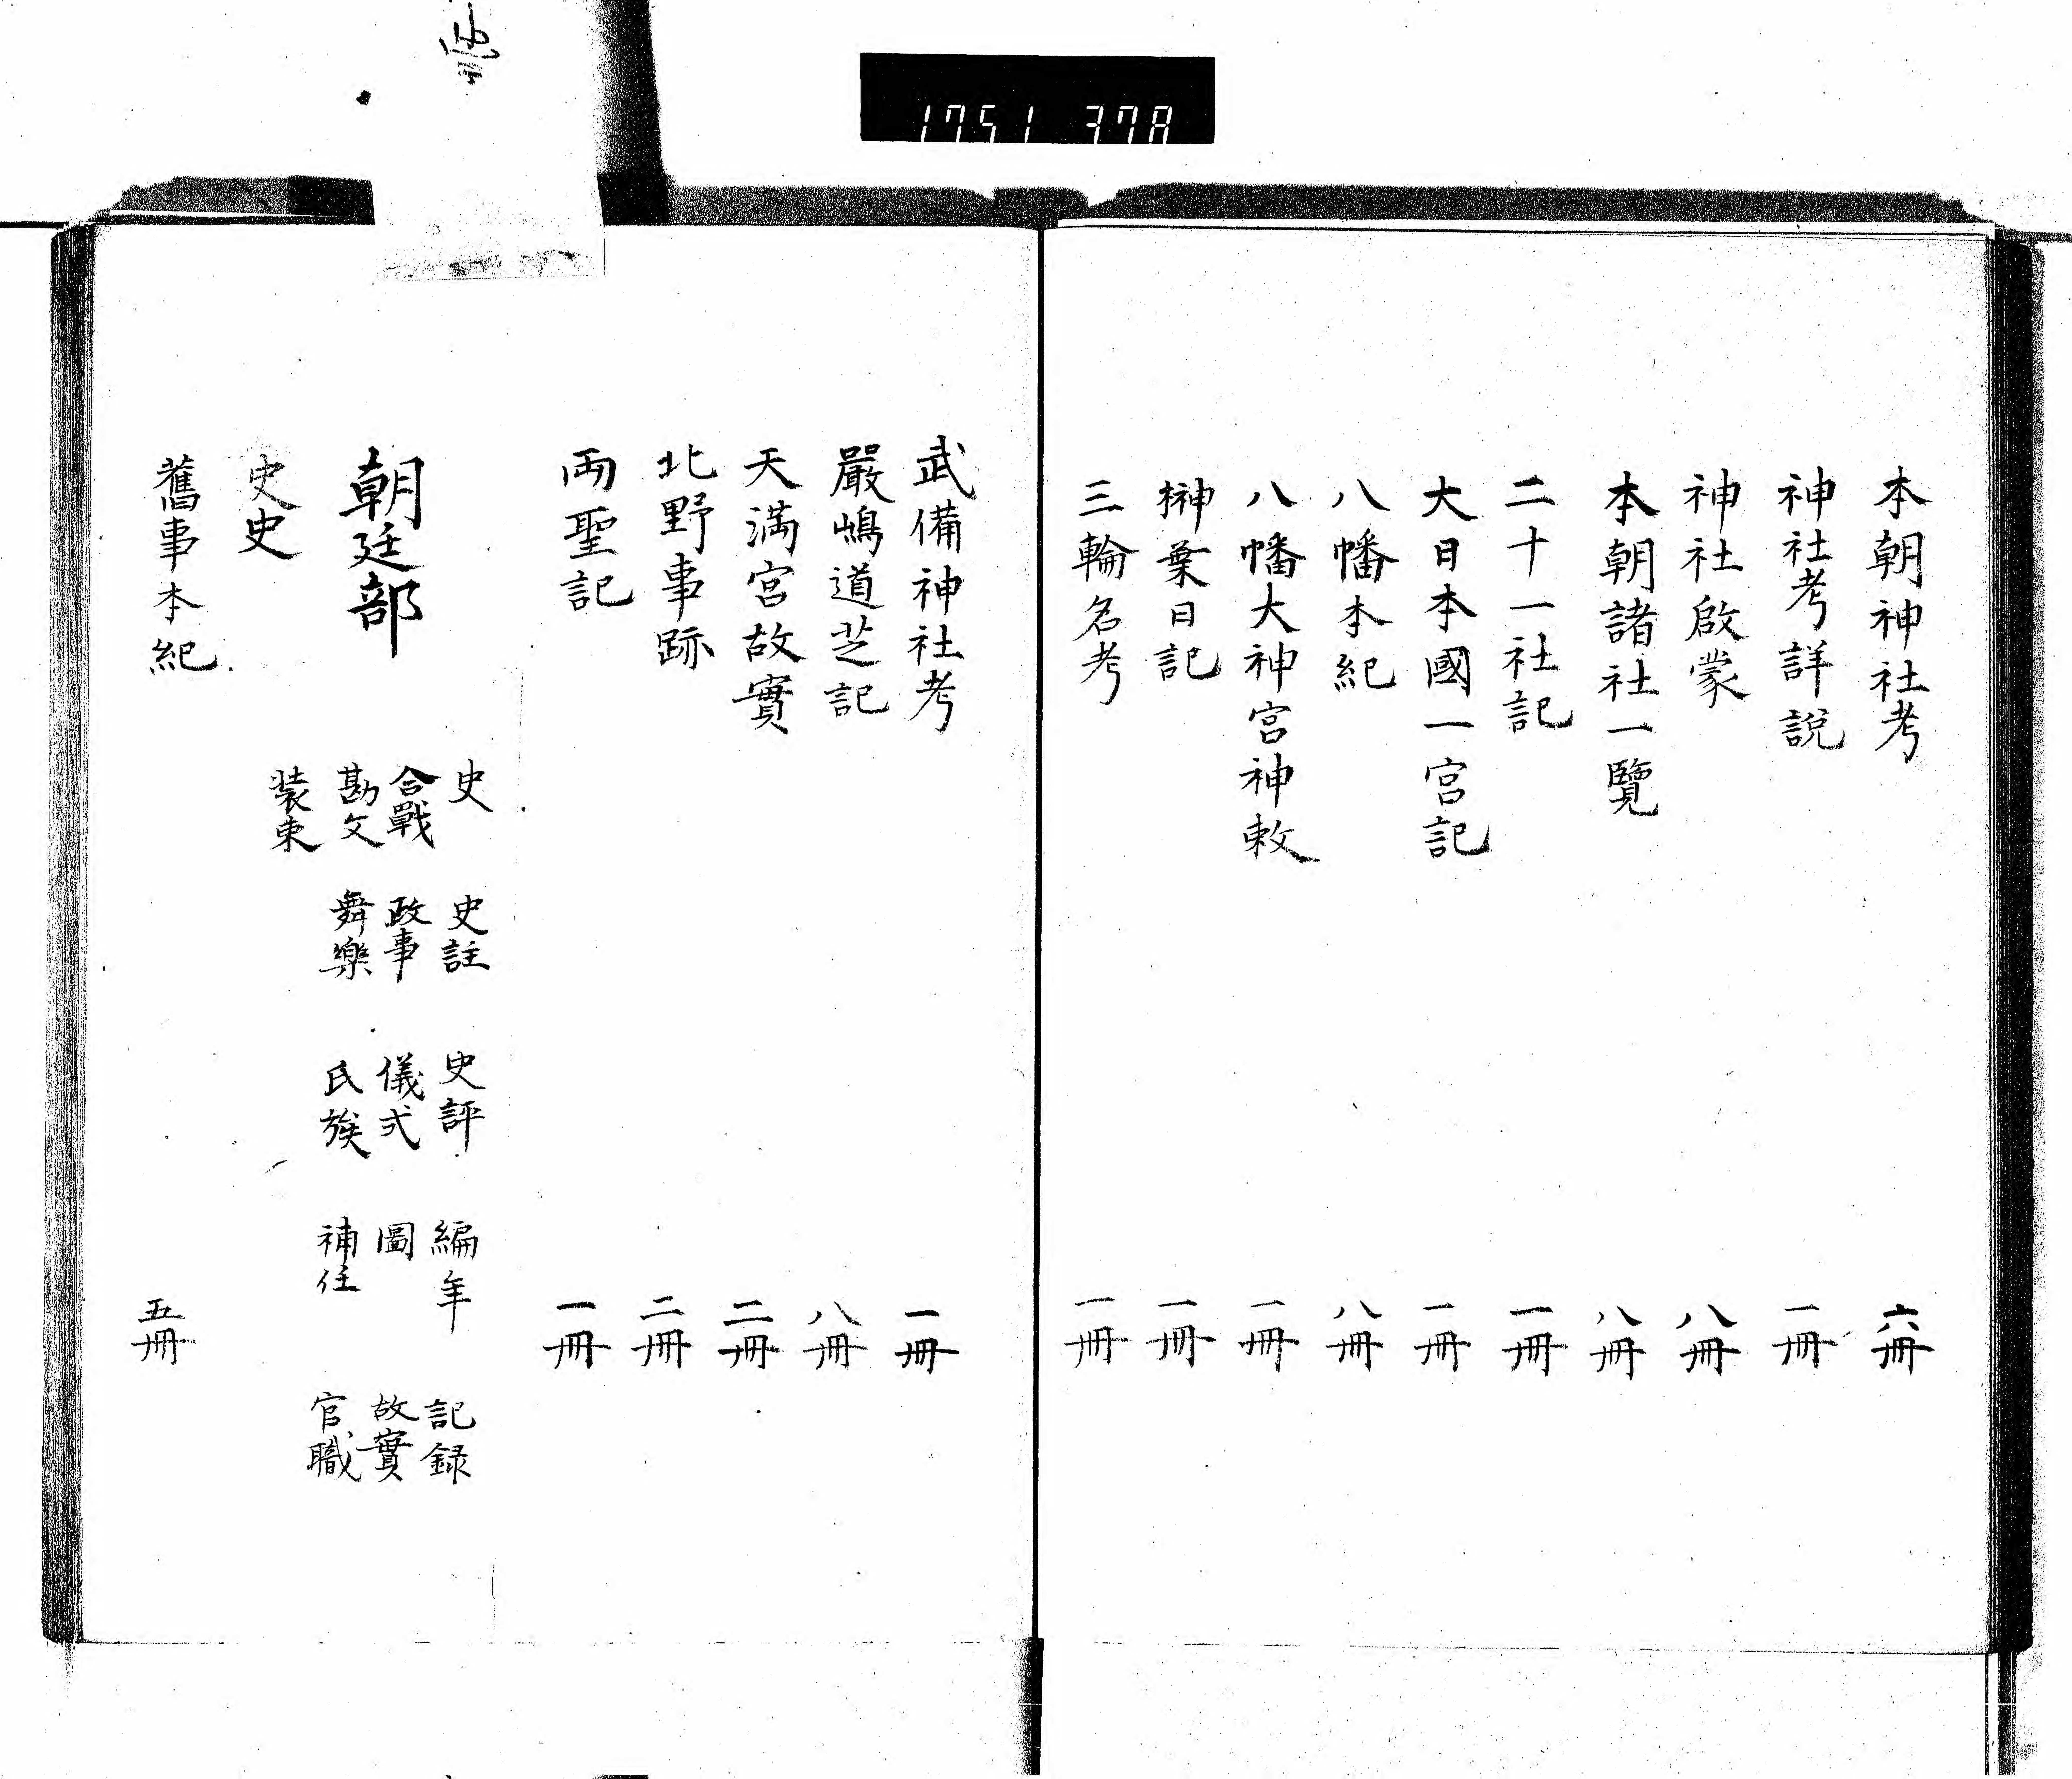 1751 378
本朝神社考 六冊
神社考詳說 一冊
神社啟蒙 八冊
本朝諸社一覽 八冊
二十一社記 一冊
大日本國一宮記 一冊
八幡本紀 八冊
八幡大神宮神敕 一冊
榊葉日記 一冊
三輪名考 一冊
武備神社考 一冊
嚴嶋道芝記 八冊
天満宮故實 二冊
北野事跡 二冊
両聖記 一冊
朝廷部
史 史註 史評 編年 記録
合戰 政事 儀式 圖 故實
勘文 舞樂 氏族 補任 官職
装束
史史
舊事本紀 五冊